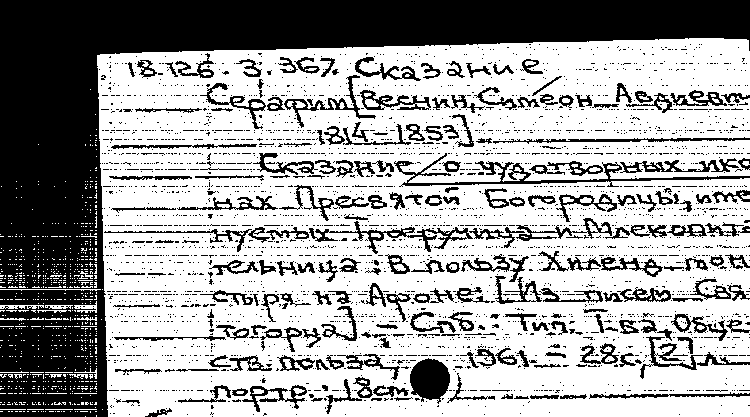 18.126.3.367. Сказание
Серафим [Веснин, Симеон Авдиевич
1814-1853]
Сказание о чудотворных ико-
нах Пресвятой Богородицы, име-
нуемых Троеручица и Млекопита-
тельница: В пользу Хиленд. мон
стыря на Афоне: [Из писем Свя-
тогорца]. - Спб.: Тип. Т-ва, Обще-
ств. польза, 1961. - 28с., [2] л.
портр.; 18см